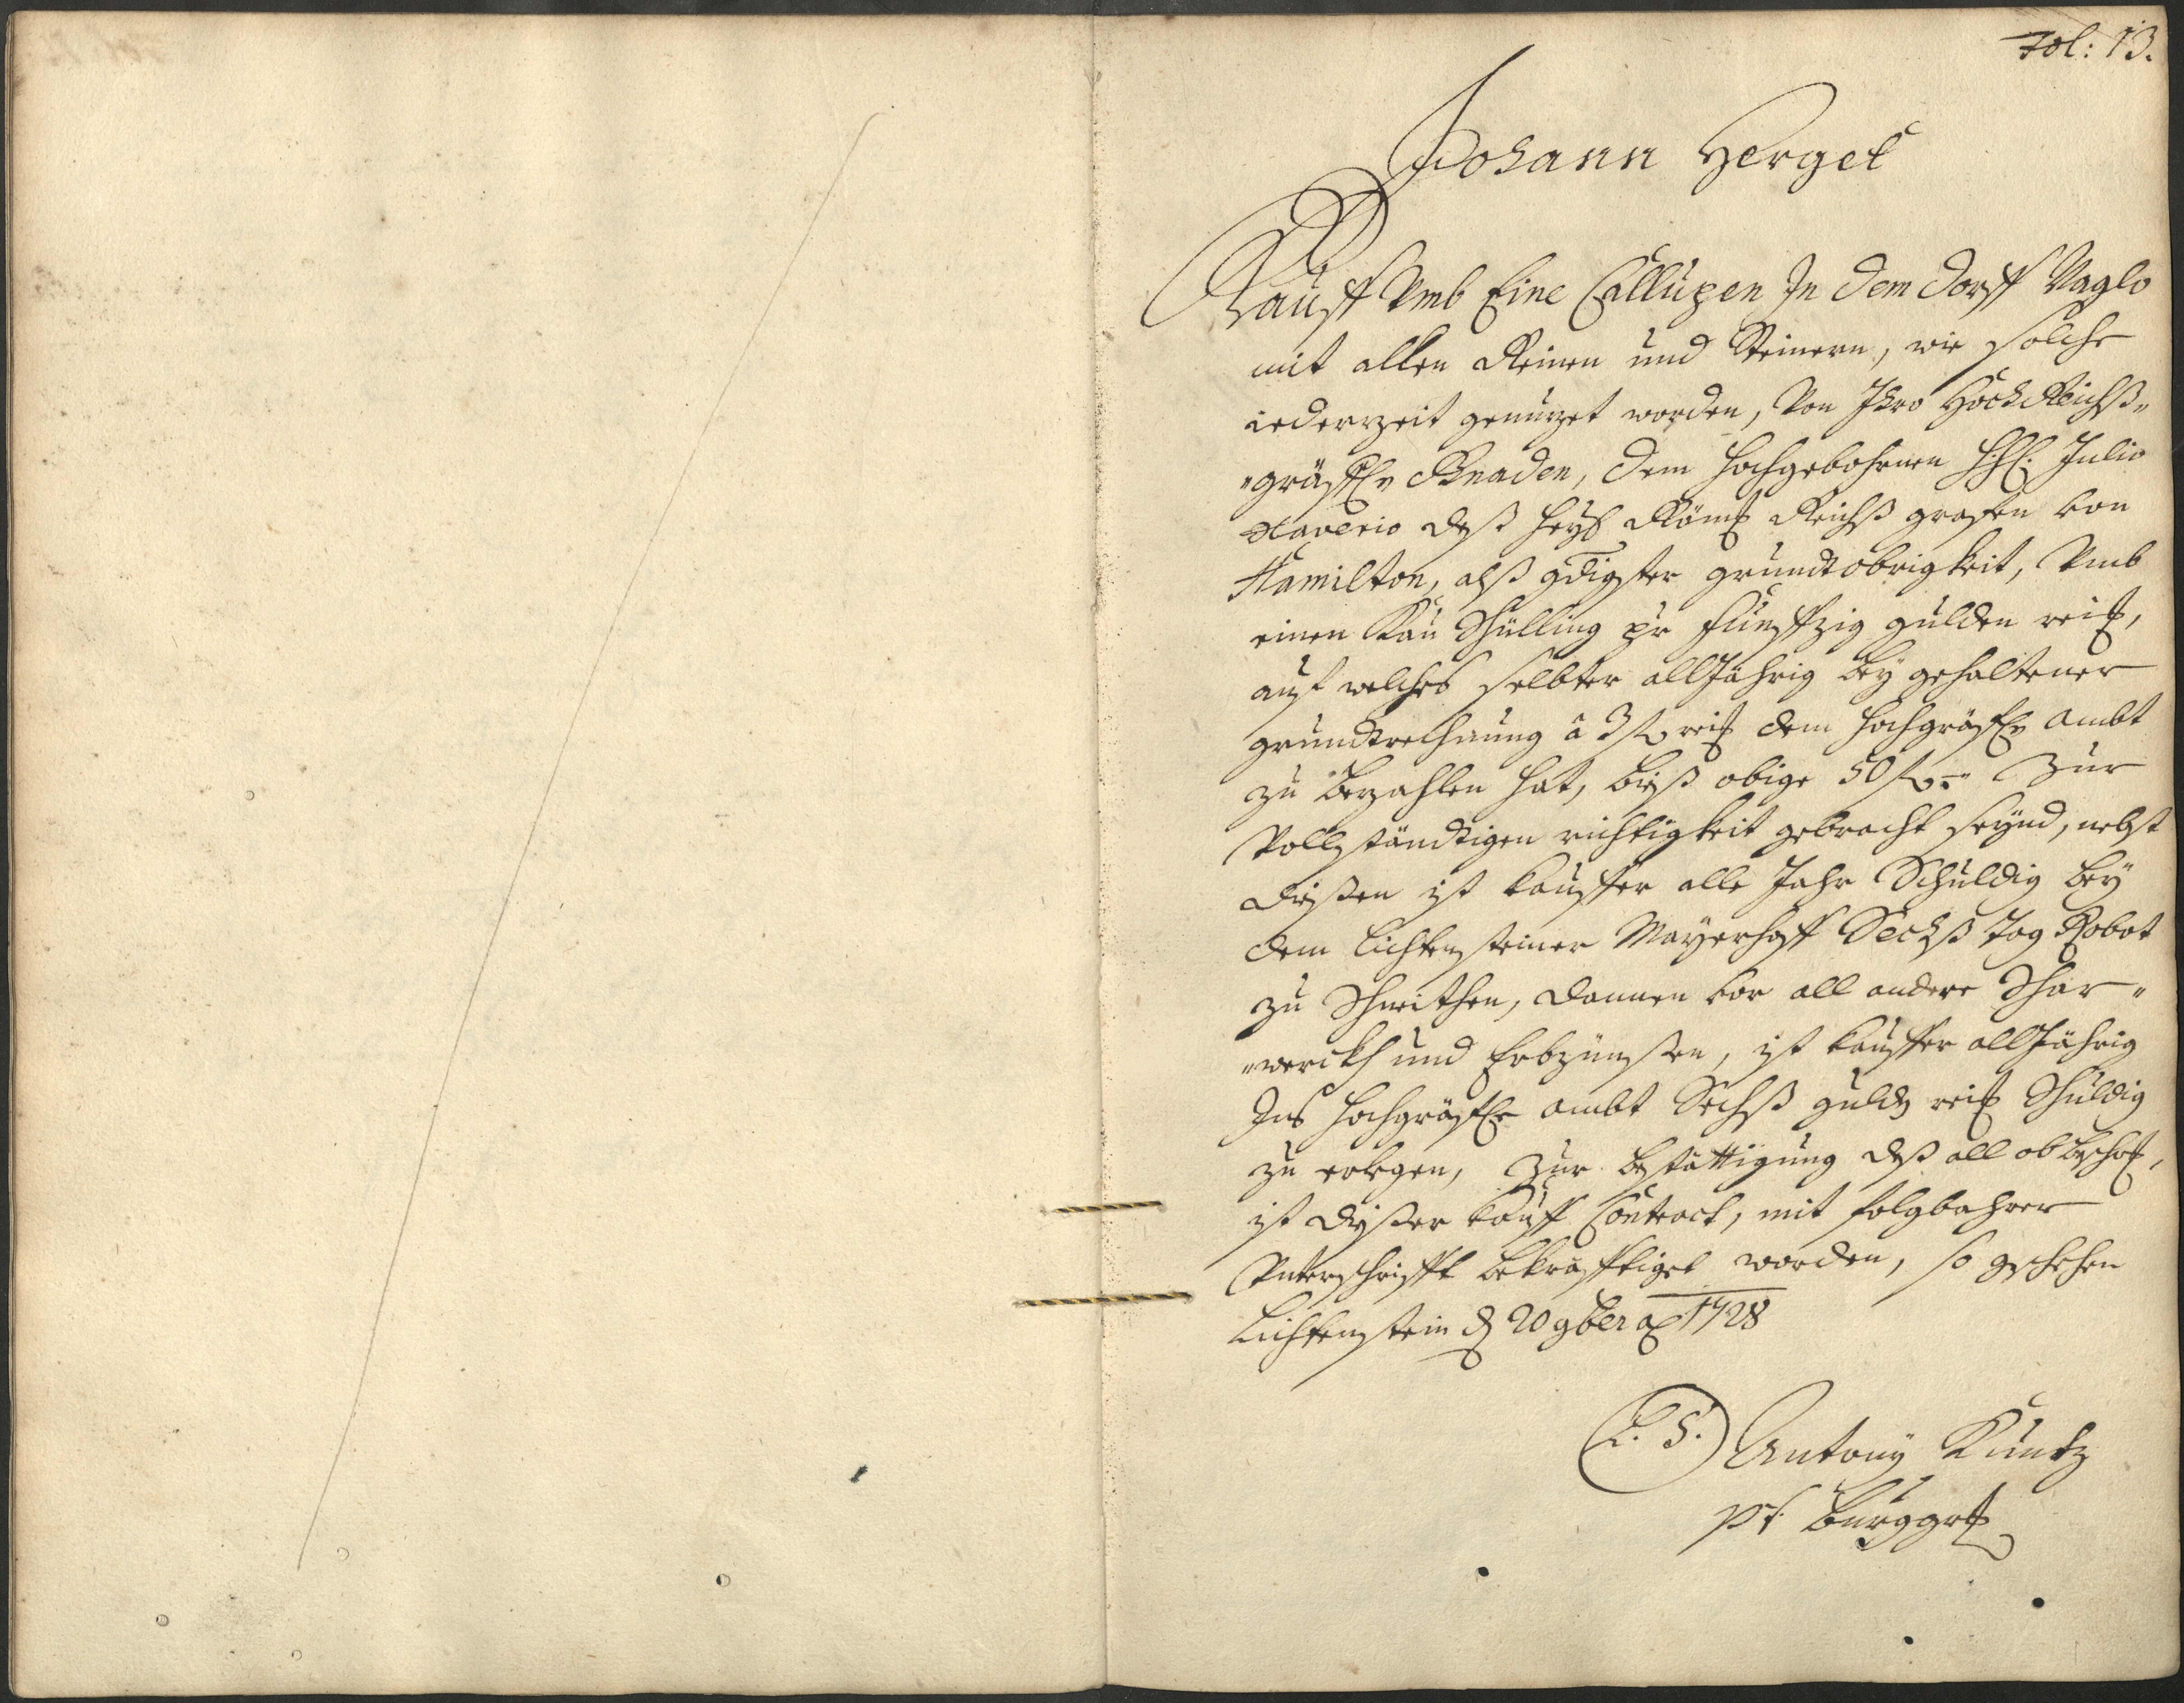 Fol: 13.
Johann Herget
Kauff Vmb Eine Callupen In dem dorff Naglo
mit allen Reinen und Steinern, wie solche
iederzeit genutzet worden, Von Ihro Hoch Reichß„
„gräffl: Gnaden, dem hochgebohrnen H: H: Julio
Xaverio deß heyl: Röm: Reichß grafen von
Hamilton, alß gdigster grundtobrigkeit, Vmb
einen Kau Schilling pr funffzig gulden rei:,
auf welches selbter all Jährig bey gehaltener
grundtrechnung â 3 f rei: dem hochgräffl: ambt
zu bezahlen hat, bieß obige 50 f:–" Zur
Vollständtigen richtigkeit gebracht seynd, nebst
dießen ist kauffer alle Jahr Schuldig bey
dem Lichtensteiner Mayerhoff Sechß tag Robot
zu Schneithen, dannen vor all andere Schar„
„werckh und Erbzünßen, ist kauffer all Jährig
Ins hochgräffl: ambt Sechß guld: rei: Schuldig
zu erlegen, Zur bestättigung deß all ob besch:,
ist dießer Kauff Contract, mit folgbahrer
Vnterschrifft bekräfftiget worden, so geschehen
Lichtenstein d 20 9ber aō 1728
L. S. Antonÿ Kuntz
pt. burggrf: